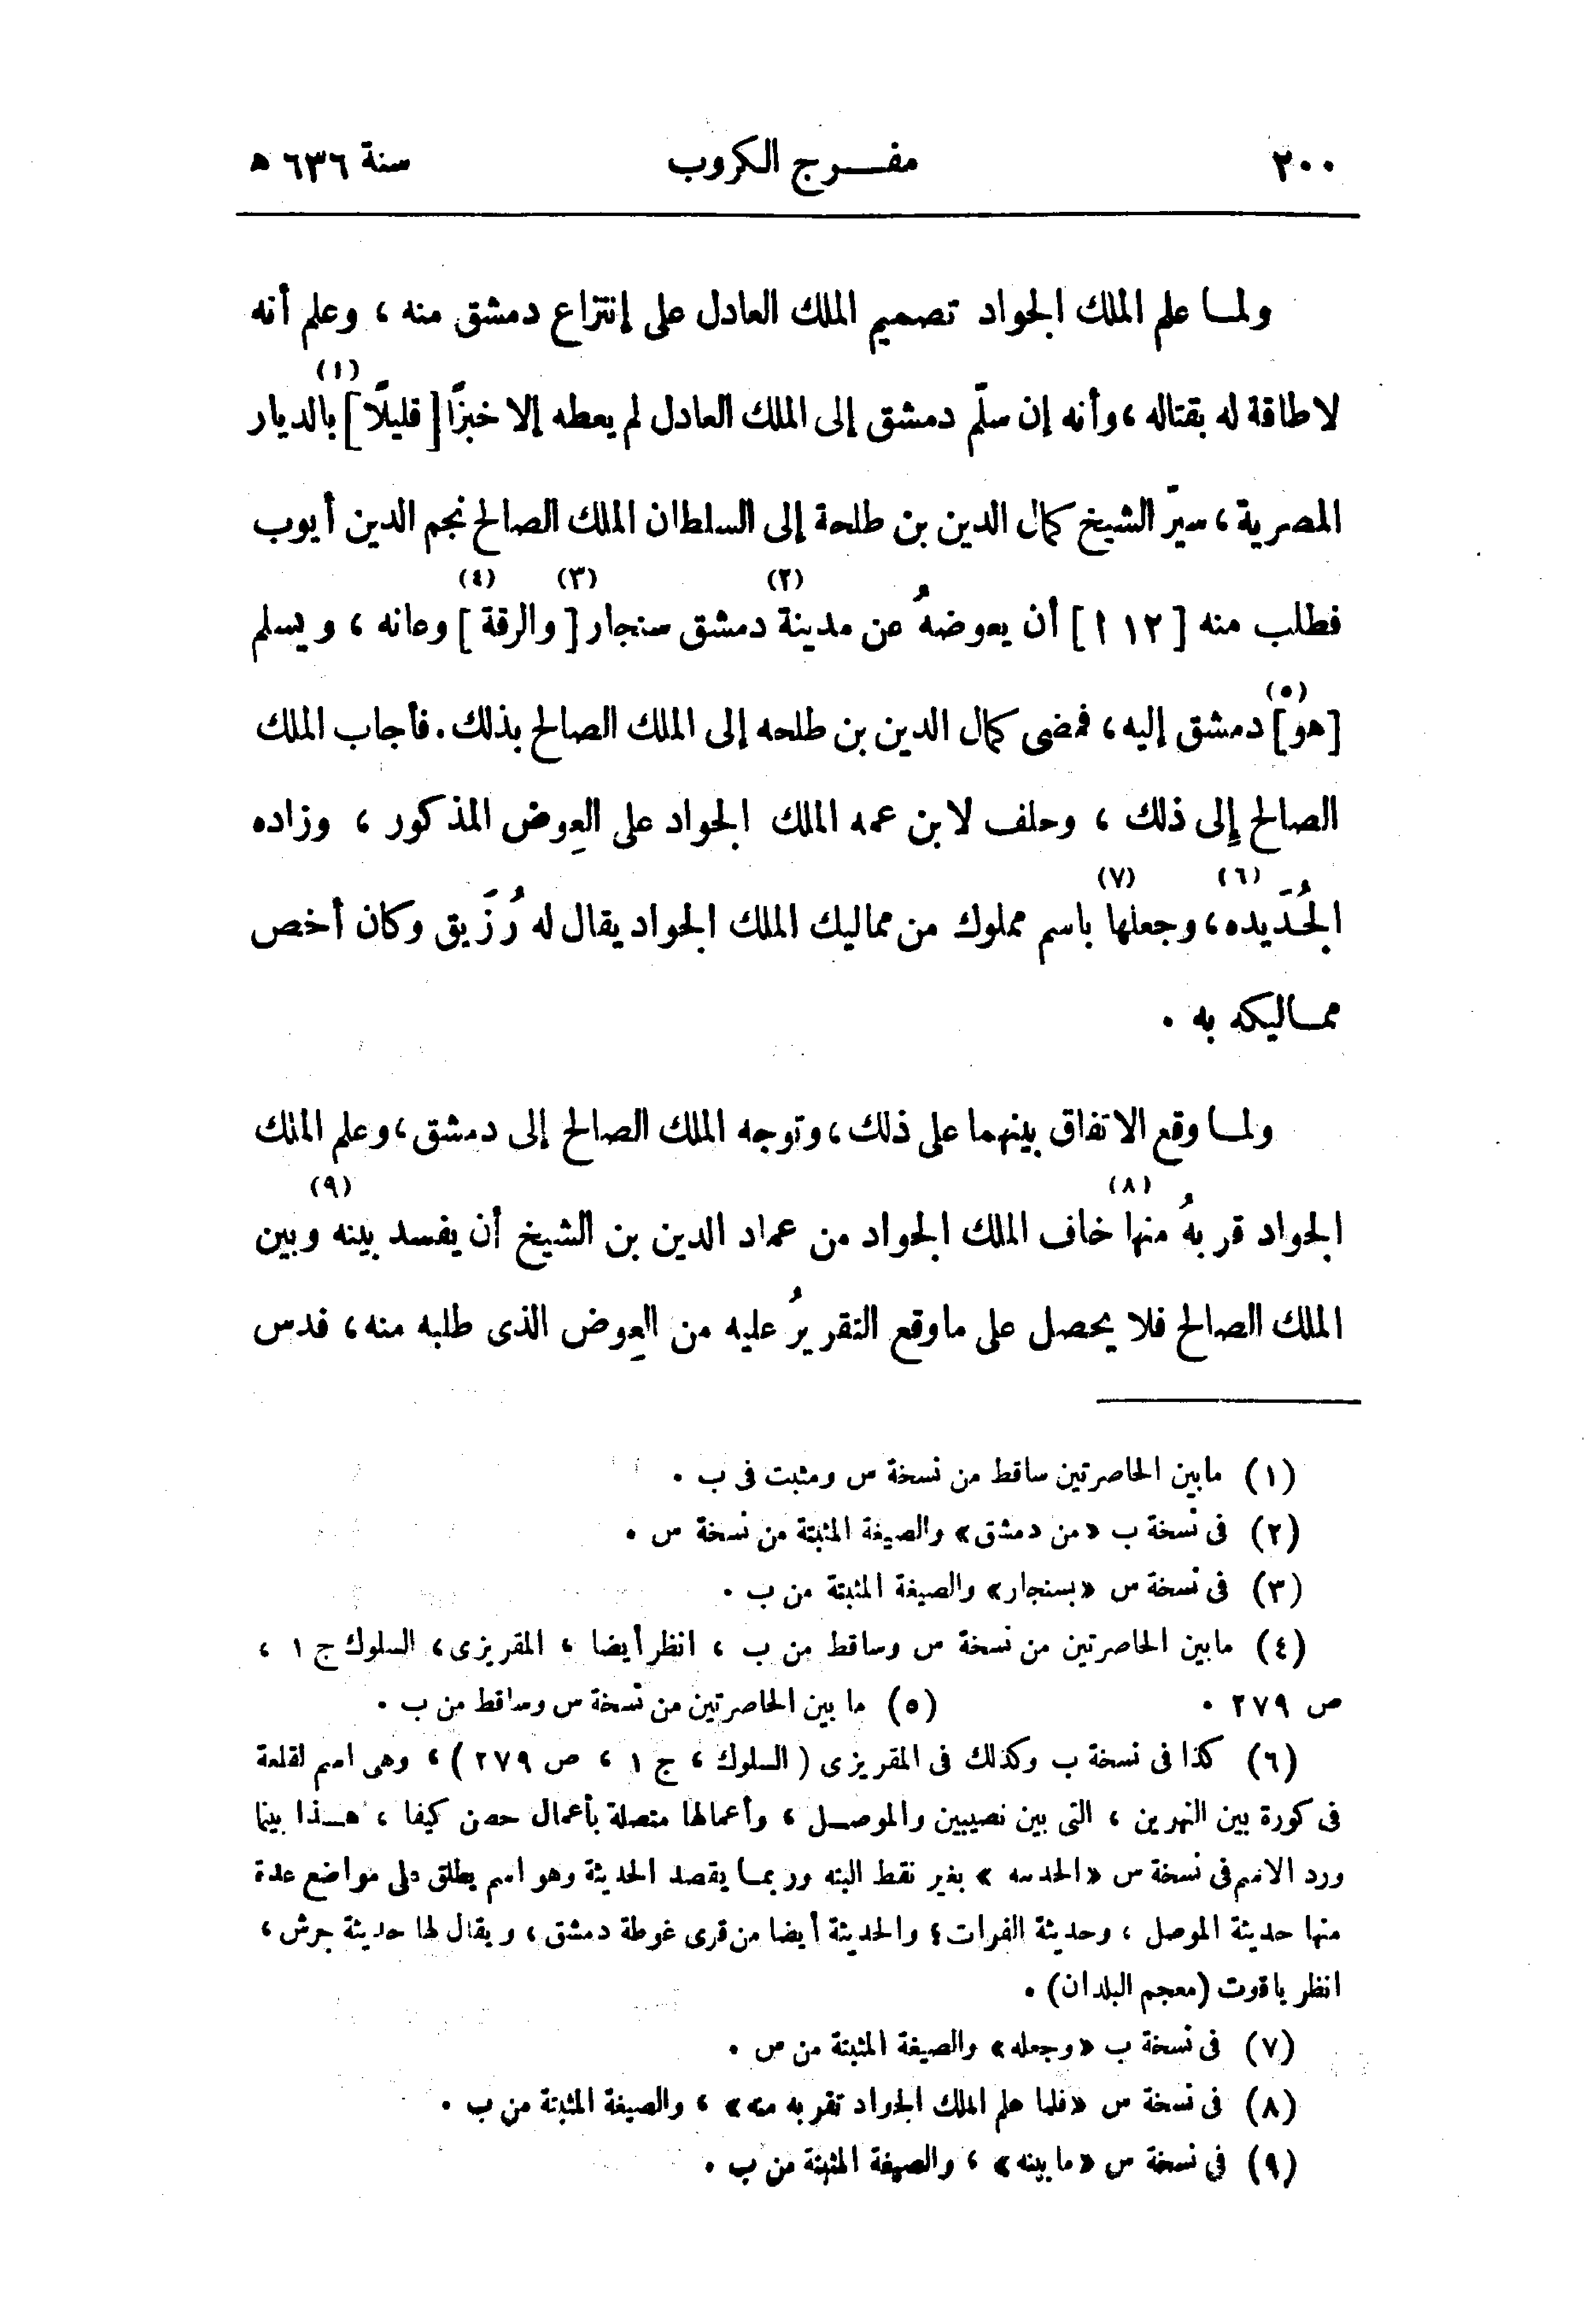 ٢٠٠ مفـــرج الكروب سنة ٦٣٦ هـ
ولمـا علم الملك الجواد تصميم الملك العادل على إنتزاع دمشق منه ، وعلم أنه
لاطاقة له بقتاله ، وأنه إن سلّم دمشق إلى الملك العادل لم يعطه إلا خبزًا [ قليلًا ](١) بالديار
المصرية ، سيّر الشيخ كمال الدين بن طلحة إلى السلطان الملك الصالح نجم الدين أيوب
فطلب منه [ ١١٢ ] أن يعوضهُ عن مدينة(٢) دمشق سنجار(٣) [ والرقة ](٤) وعانه ، ويسلم
[هو](٥) دمشق إليه ، فمضى كمال الدين بن طلحه إلى الملك الصالح بذلك . فأجاب الملك
الصالح إلى ذلك ، وحلف لابن عمه الملك الجواد على العِوض المذكور ، وزاده
الجُدَيده(٦) ، وجعلها(٧) باسم مملوك من مماليك الملك الجواد يقال له رُزَيق وكان أخص
ممـاليكه به .
ولمـا وقع الاتفاق بينهما على ذلك ، وتوجه الملك الصالح إلى دمشق ، وعلم الملك
الجواد قربهُ منها(٨) خاف الملك الجواد من عماد الدين بن الشيخ أن يفسد بينه(٩) وبين
الملك الصالح فلا يحصل على ماوقع التقريرُ عليه من العِوض الذى طلبه منه ، فدس
(١) مابين الحاصرتين ساقط من نسخة س ومثبت فى ب .
(٢) فى نسخة ب «من دمشق» والصيغة المثبتة من نسخة س .
(٣) فى نسخة س «بسنجار» والصيغة المثبتة من ب .
(٤) مابين الحاصرتين من نسخة س وساقط من ب ، انظر أيضا ، المقريزى ، السلوك ج ١ ،
ص ٢٧٩ . (٥) ما بين الحاصرتين من نسخة س وساقط من ب .
(٦) كذا فى نسخة ب وكذلك فى المقريزى ( السلوك ، ج ١ ، ص ٢٧٩ ) ، وهى اسم لقلعة
فى كورة بين النهرين ، التى بين نصيبين والموصـل ، وأعمالها متصلة بأعمال حصن كيفا ، هـذا بينما
ورد الاسم فى نسخة س «الحدسه » بغير نقط البته وربمـا يقصد الحديثة وهو اسم يطلق على مواضع عدة
منها حديثة الموصل ، وحديثة الفرات ؛ والحديثة أيضا من قرى غوطة دمشق ، ويقال لها حديثة جرش ،
انظر ياقوت (معجم البلدان) .
(٧) فى نسخة ب «وجعله» والصيغة المثبتة من س .
(٨) فى نسخة س «فلما علم الملك الجواد تقربه منه» ، والصيغة المثبتة من ب .
(٩) فى نسخة س «ما بينه» ، والصيغة المثبتة من ب .